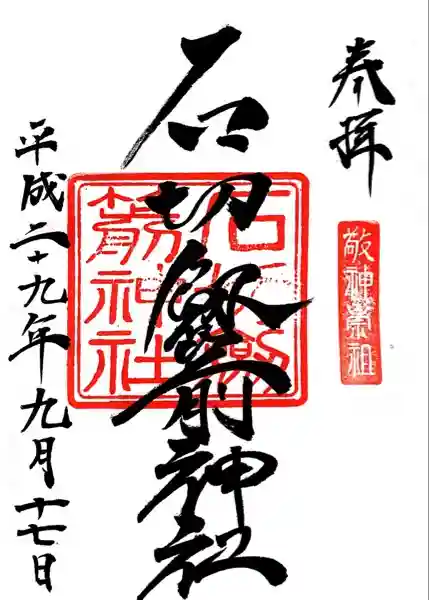 奉拝
敬神崇祖
石切劔箭神社
石切劔
箭神社
平成二十九年九月十七日